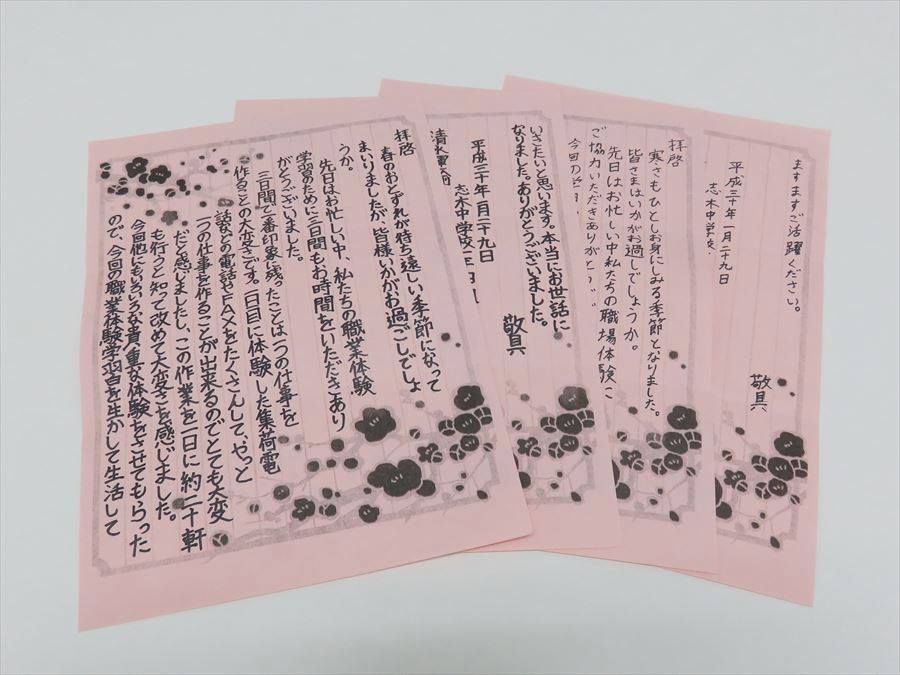 拝啓
春のおとずれが待ち遠しい季節になって
まいりましたが、皆様いかがお過ごしでしょ
うか。
先日はお忙しい中、私たちの職業体験
学習のために三日間もお時間をいただきあり
がとうございました。
三日間で一番印象に残ったことは一つの仕事を
作ることの大変さです。一日目に体験した集荷電
話などの電話やFAXをたくさんして、やっと
一つの仕事を作ることが出来るのでとても大変
だと感じましたし、この作業を一日に約二十軒
も行うと知って改めて大変さを感じました。
今回他にもいろいろな貴重な体験をさせてもらった
ので、今回の職業体験学習を生かして生活して
いきたいと思います。本当にお世話に
なりました。ありがとうございました。
敬具
平成三十年一月二十九日
志木中学校
清水
拝啓
寒さもひとしお身にしみる季節となりました。
皆さまはいかがお過しでしょうか。
先日はお忙しい中私たちの職場体験に
ご協力いただきありがとう
今回の
ますますご活躍ください。
敬具
平成三十年一月二十九日
志木中学校